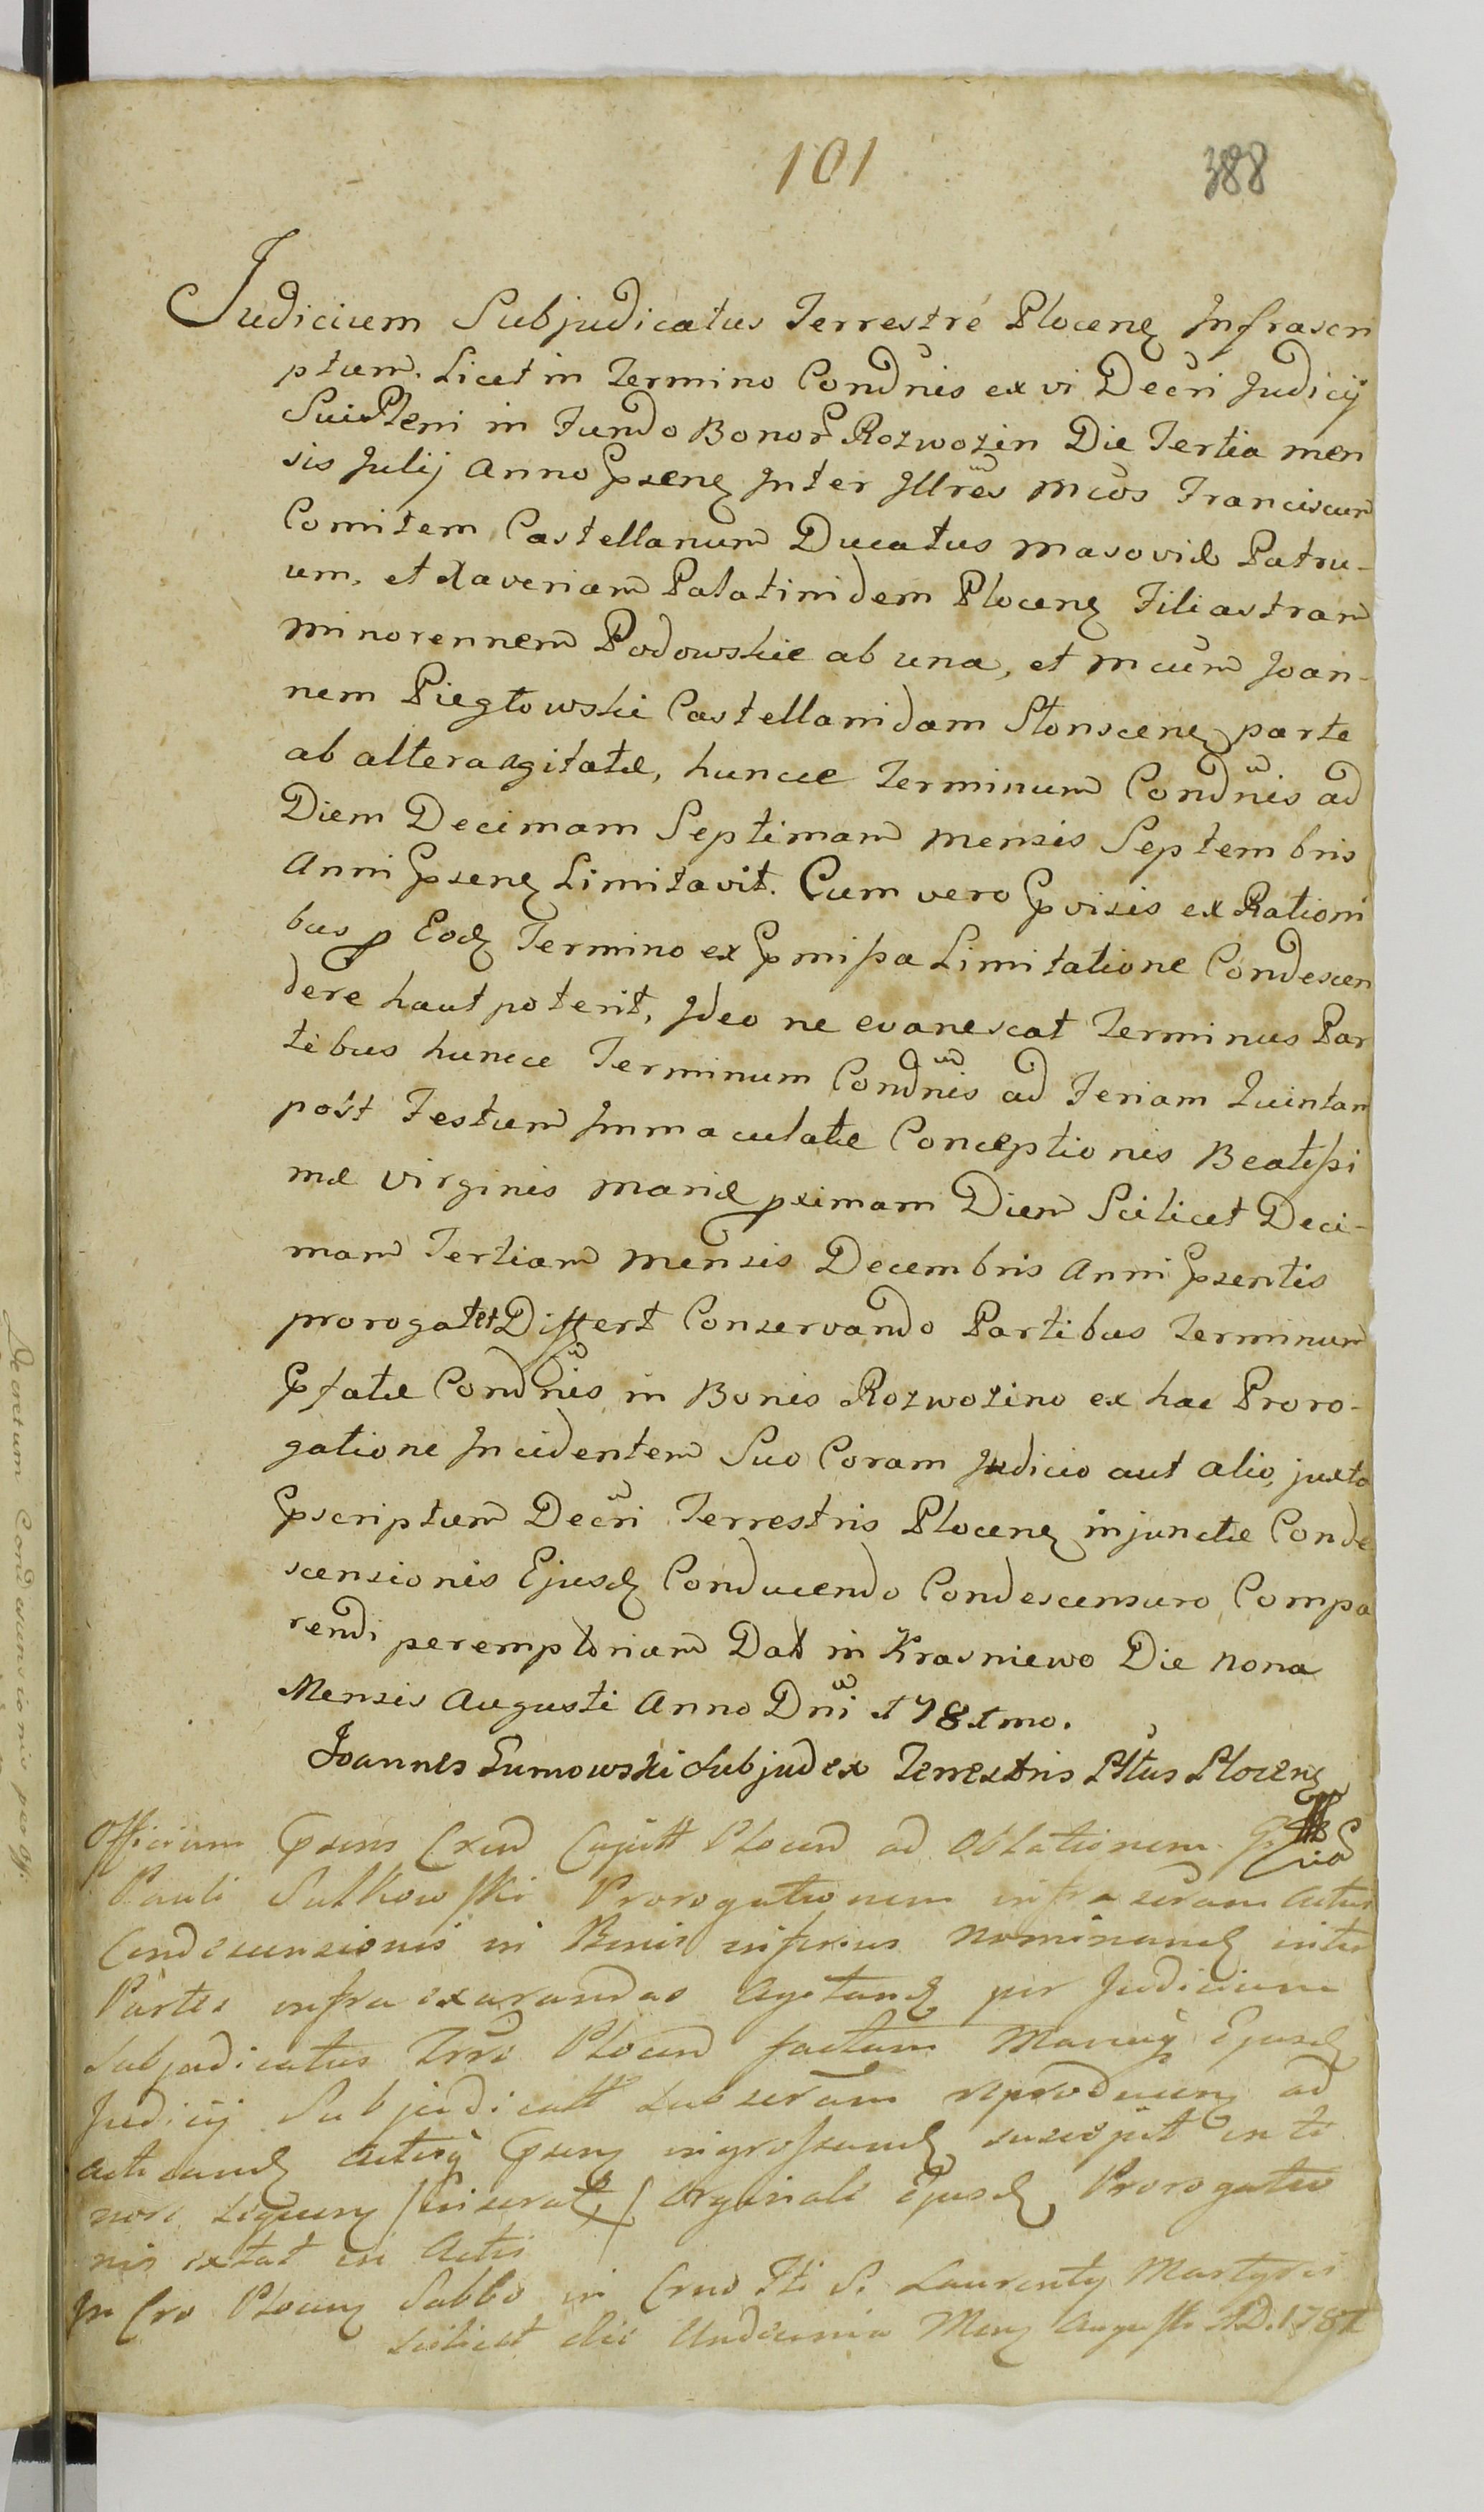 101
388
Judicium Subjudicatus Terrestre Plocenȝ Infrascri
ptum. Licet in Termino Condnis ex vi Decri Judicij
Sui Pleni in Fundo Bonor Rozwozin Die Tertia men
sis Julij Anno Psenȝ Inter Illres Mcos Franciscum
Comitem Castellanum Ducatus Masoviæ Patru-
um, et Xaveriam Palatinidem Plocenȝ Filiastram
Minorennem Podowskie ab una, et Mcum Joan-
nem Piegłowski Castellanidam Słonscenȝ parte
ab altera agitatæ, huncce Terminum Condnis ad
Diem Decimam Septimam Mensis Septembris
Anni Psenȝ Limitavit. Cum vero Pvisis ex Rationi
bus p Eodȝ Termino ex Pmissa Limitatione Condescen
dere haut poterit, Ideo ne evanescat Terminus Par
tibus huncce Terminum Condnis ad Feriam Quintam
post Festum Immaculatæ Conceptionis Beatissi
mæ Virginis Mariæ pximam Diem Scilicet Deci-
mam Tertiam Mensis Decembris Anni Psentis
prorogat et Differt Conservando Partibus Terminum
Pfatæ Condnis in Bonis Rozwozino ex hac Proro-
gatione Incidentem Suo Coram Judicio aut alio, juxta
Pscriptum Decri Terrestris Plocenȝ injunctæ Conde
scensionis Ejusdȝ Conducendo Condescensuro Compa
rendi peremptorium Dat in Krasniewo Die Nona
Mensis Augusti Anno Dni 1781mo.
Joannes Lumowski Subjudex Terrestris Pltus Plocenȝ
Officium Psens Cxend Capitt Plocen ad Oblationem
Pauli Sutkowski Prorogationem infrascram Actus
Condescensionis in Bonis inferius Nominandȝ inter
Partes infra exarandas Agitandȝ per Judicium
Subjudicatus Trre Plocen factam Manuq Ejusdȝ
Judicij Subjudicatt Subscram reproducenȝ ad
acticandȝ Actisq Psenȝ ingrossandȝ suscepit in te
nore sequenȝ (Inserat) Originale Ejusdȝ Prorogatio
nis extat in Actis
In Cro Plocenȝ Sabbo in Crno Fti S. Laurentij Martyris
scilicet die Undecima Menȝ Augusti A.D. 1781
Decretum Condescensionis per